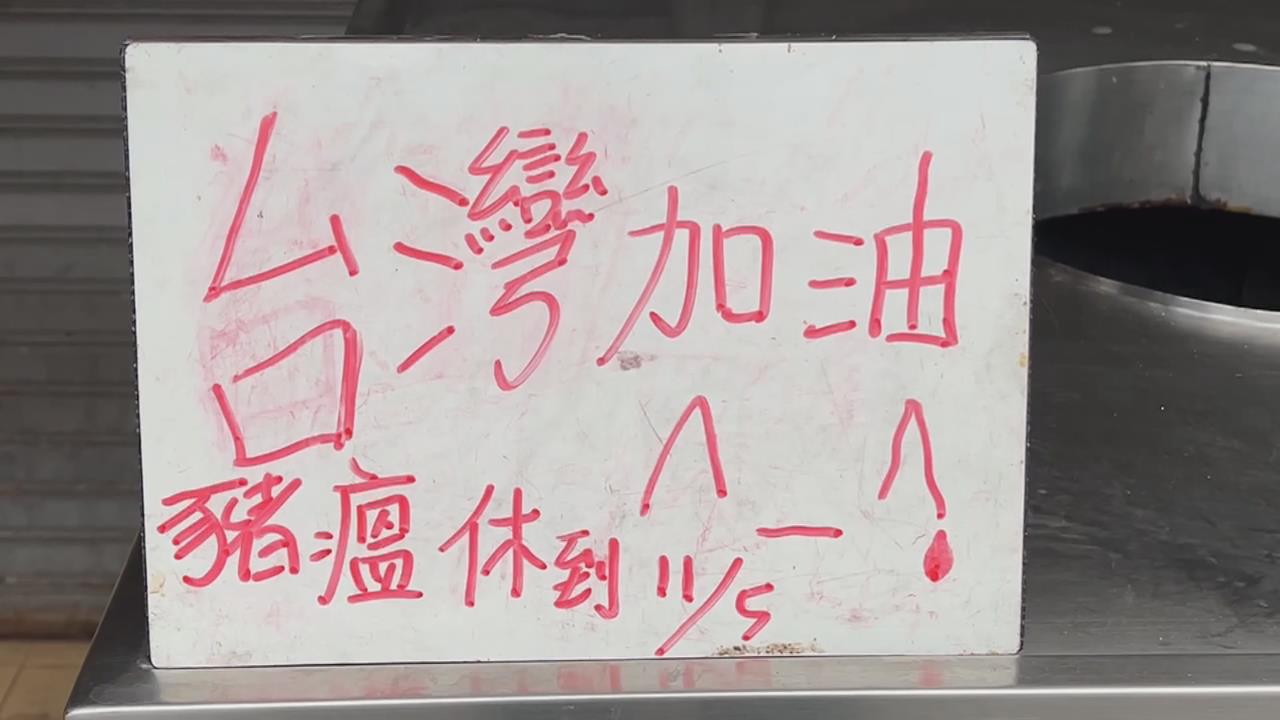 台灣加油
豬瘟 休到 11/5